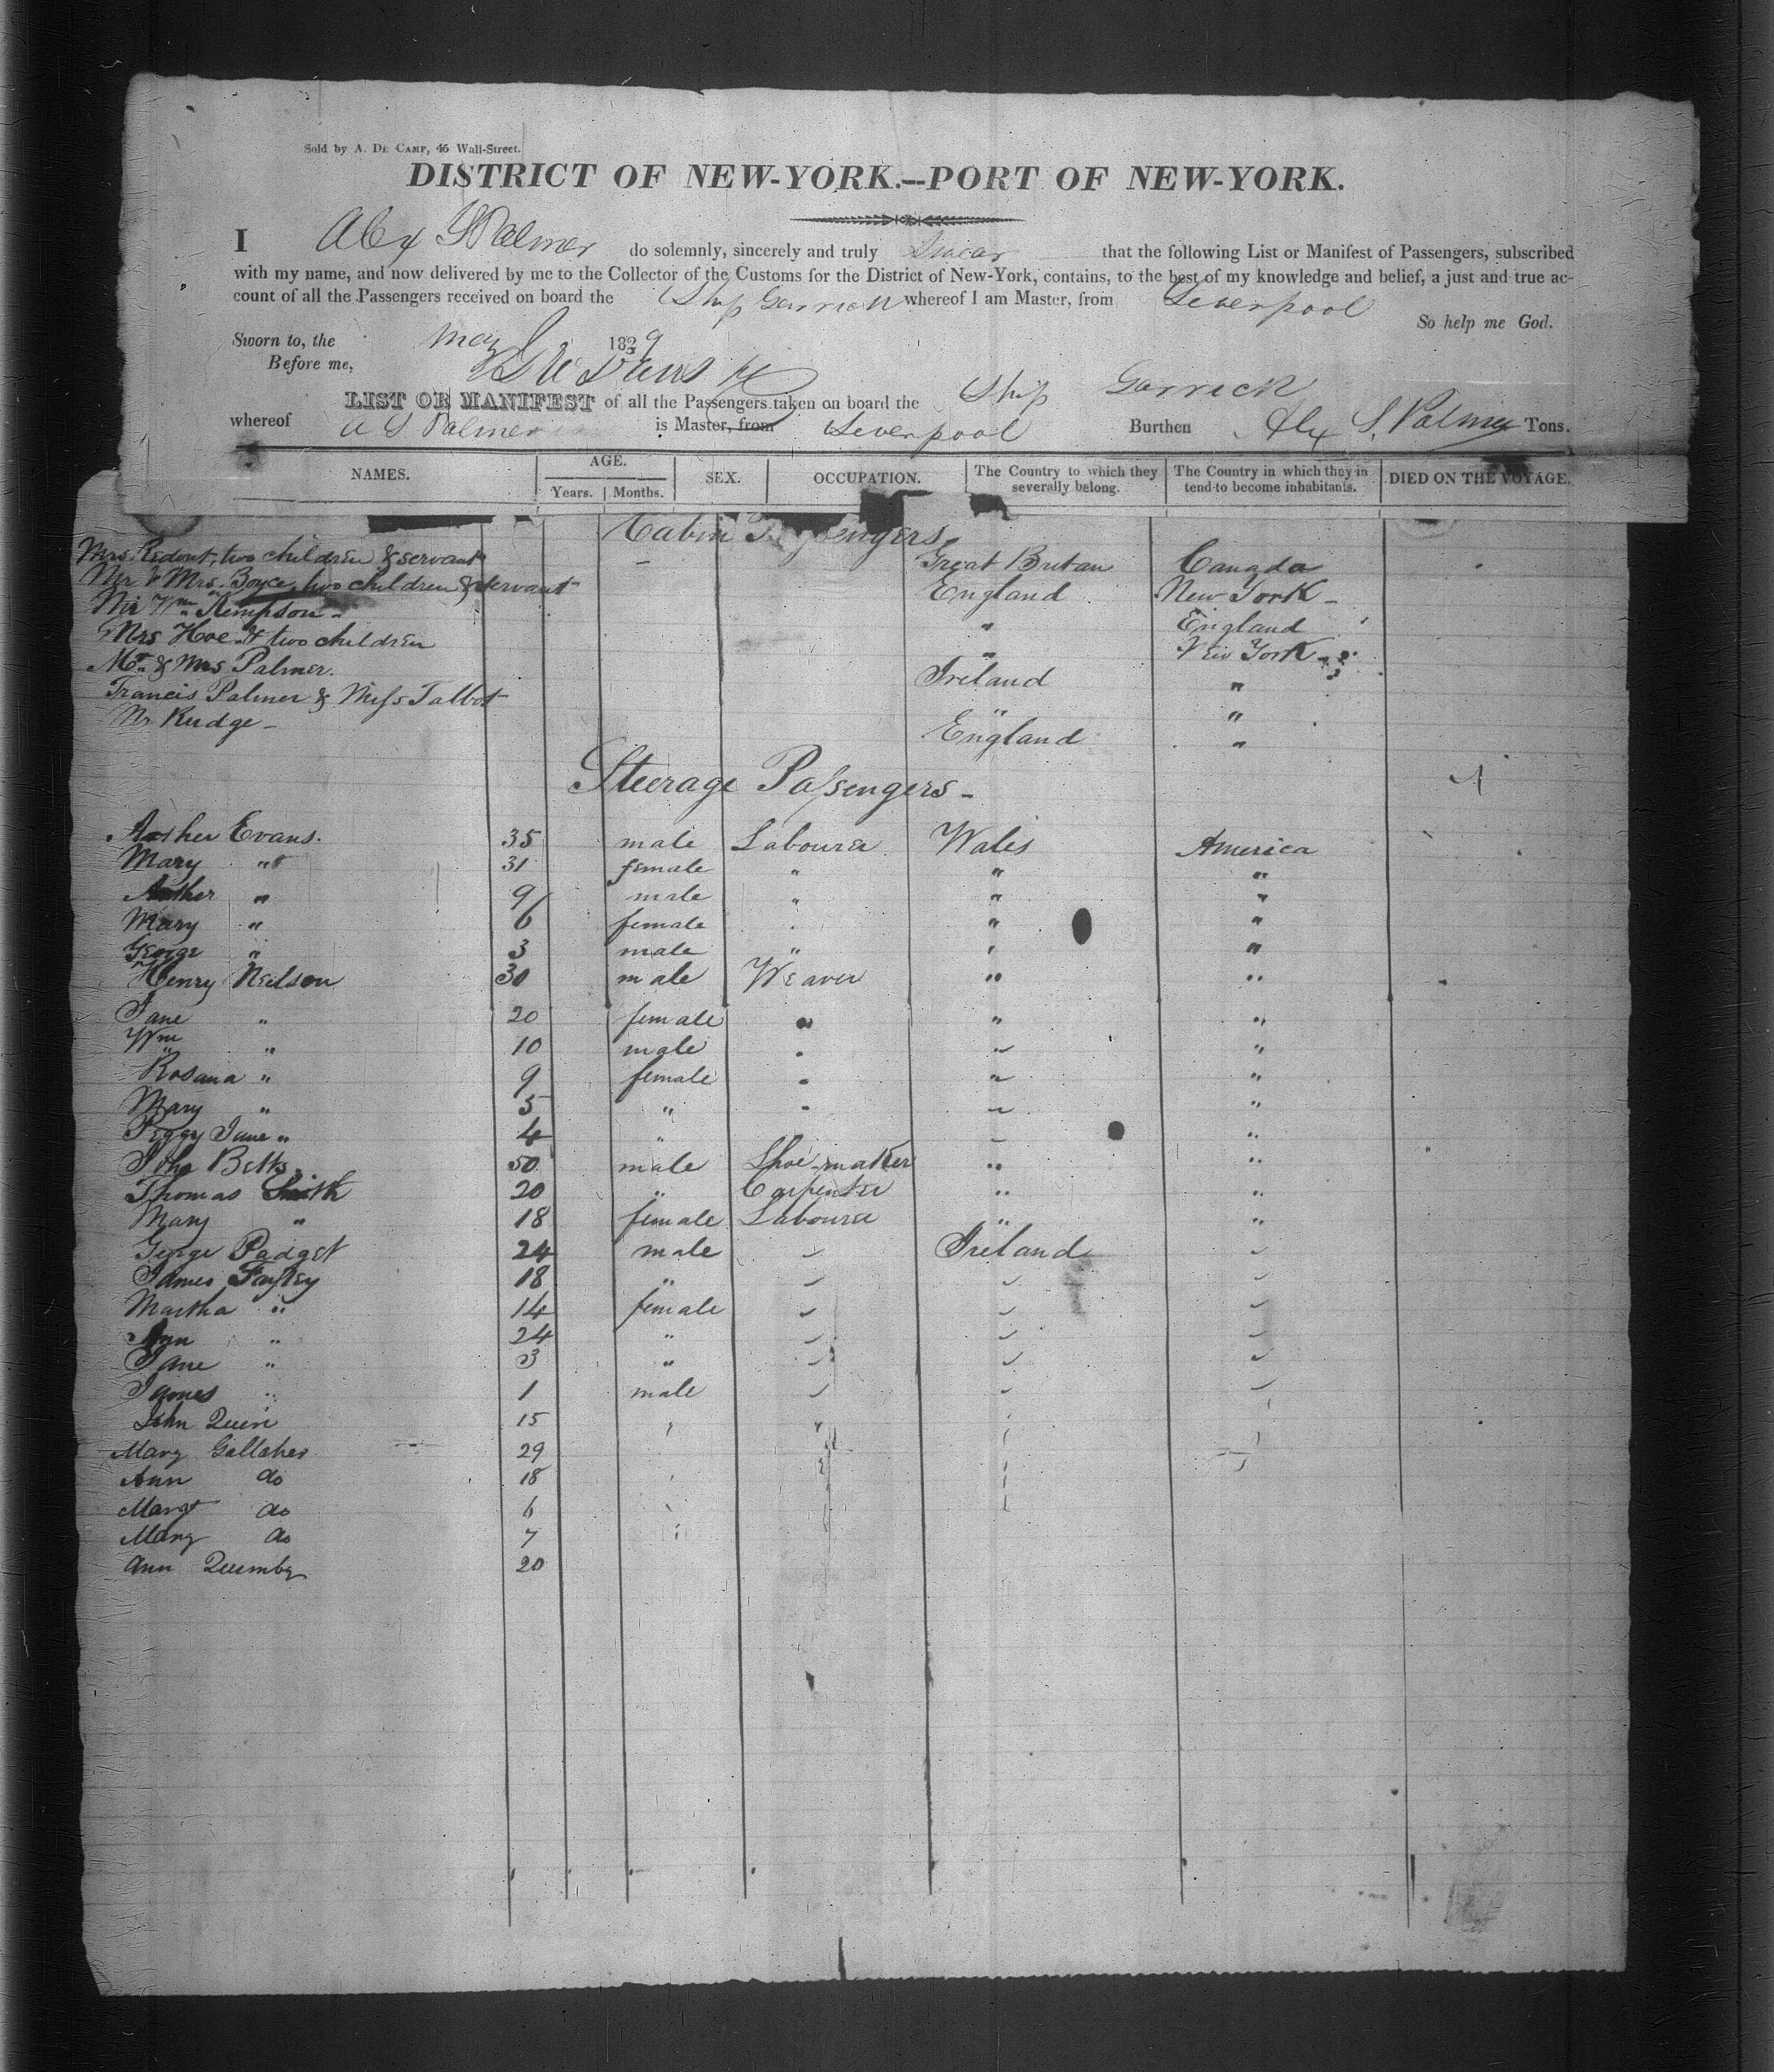 Sold by A. De Camp, 46 Wall-Street.
DISTRICT OF NEW-YORK.—PORT OF NEW-YORK.
I Alex S Palmer do solemnly, sincerely and truly Swear that the following List or Manifest of Passengers, subscribed
with my name, and now delivered by me to the Collector of the Customs for the District of New-York, contains, to the best of my knowledge and belief, a just and true ac-
count of all the Passengers received on board the Ship Garrick whereof I am Master, from Liverpool
So help me God.
Sworn to, the May 1839
Before me,
LIST OR MANIFEST of all the Passengers taken on board the Ship Garrick
whereof A S Palmer is Master, from Liverpool Burthen Alex S. Palmer Tons.
NAMES. AGE. Years. Months. SEX. OCCUPATION. The Country to which they severally belong. The Country in which they intend to become inhabitants. DIED ON THE VOYAGE.
Cabin Passengers
Mrs. Redout, two children & servant Great Britan Canada
Mr & Mrs. Boyce, two children & servant England New York
Mr Wm Kempson " England
Mrs Hoe & two children " New York
Mr. & Mrs Palmer. Ireland "
Francis Palmer & Miss Talbot " "
Mr Rudge England "
Steerage Passengers
Evans. 35 male Labourer Wales America
Mary " 31 female " " "
" 9 male " " "
Mary " 6 female " " "
George " 3 male " " "
Henry Neilson 30 male Weaver " "
Jane " 20 female " " "
Wm " 10 male " " "
Rosana " 9 female " " "
Mary " 5 " " " "
Peggy Jane " 4 " " "
John Betts 50 male Shoe-maker " "
Thomas Smith 20 " Carpenter " "
Mary " 18 female Labourer " "
George Padget 24 male " Ireland "
James 18 " " " "
Martha " 14 female " " "
Ann " 24 " " " "
Jane " 3 " " " "
James " 1 male " " "
John Quin 15 " " "
Mary Gallaher 29
Ann do 18
Margt do 6
Mary do 7
Ann Quimby 20